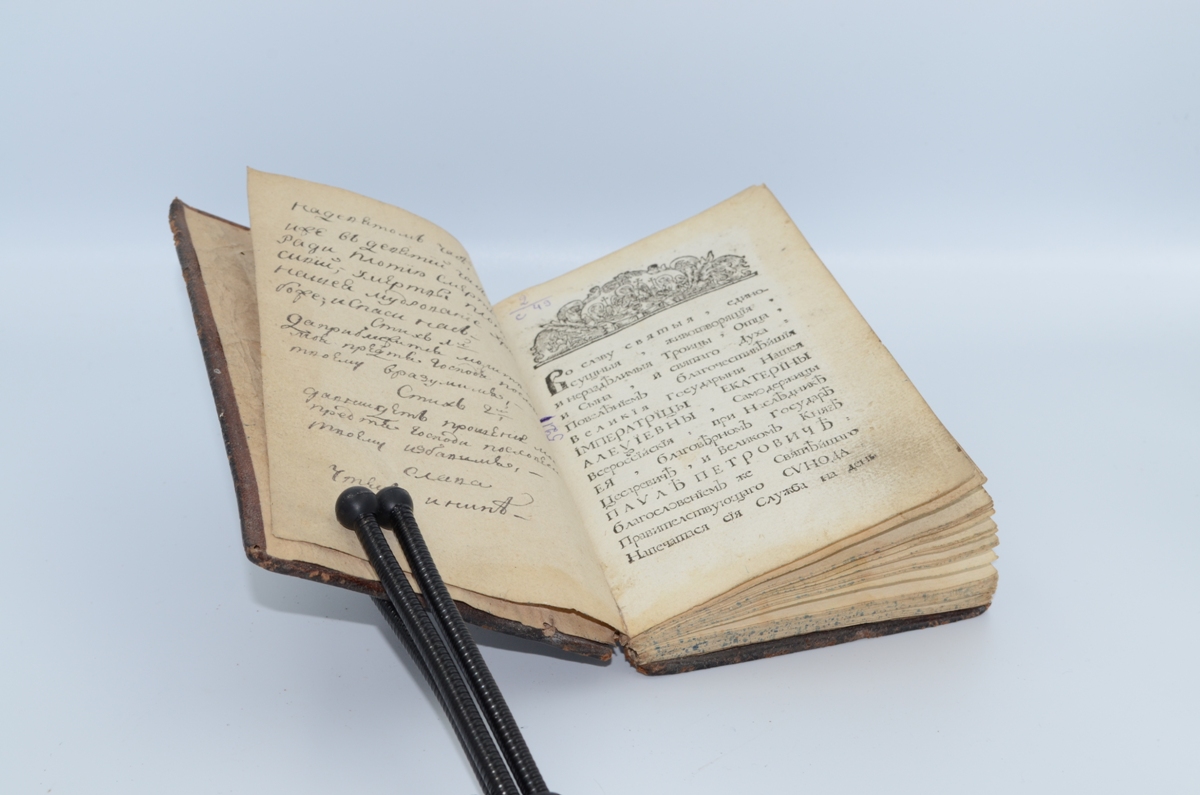 надевятомъ
иже въ девятый
ради плотию
нашея мудрование
боже и спаси насъ
Стихъ
Даприближится
твоему вразумимя;
Стихъ 2й
давнидетъ прошение
предтя Господи
твоему избавимя;
Слава
инынѣ
С 43
Во славу святыя , едино-
сущныя , животворящїя
и нераздѣлимыя Троицы , Отца ,
и Сына , и святаго Духа ,
Повелѣнїемъ благочестивѣйшїя
Великїя Государыни Нашея
ІМПЕРАТРИЦЫ ЕКАТЕРИНЫ
АЛЕѮІЕВНЫ , Самодержицы
Всероссїйскїя , при Наслѣдникѣ
ЕЯ , благовѣрномъ Государѣ
Цесаревичѣ , и Великомъ Князѣ
ПАУЛѢ ПЕТРОВИЧѢ ,
благословенїемъ же Святѣйшаго
Правителствующаго СѴНОДА
Напечатася сїя Служба на день